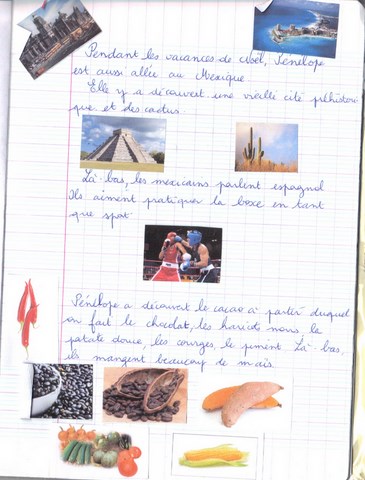 Pendant les vacances de Noël, Pénélope
est aussi allée au Mexique.
Elle y a découvert une vieille cité préhistori
que et des cactus.
Là-bas, les mexicains parlent espagnol
Ils aiment pratiquer la boxe en tant
que spot
Pénélope a découvert le cacao à partir duquel
on fait le chocolat, les haricots noirs, la
patate douce, les courges, le piment. Là-bas,
ils mangent beaucoup de maïs.